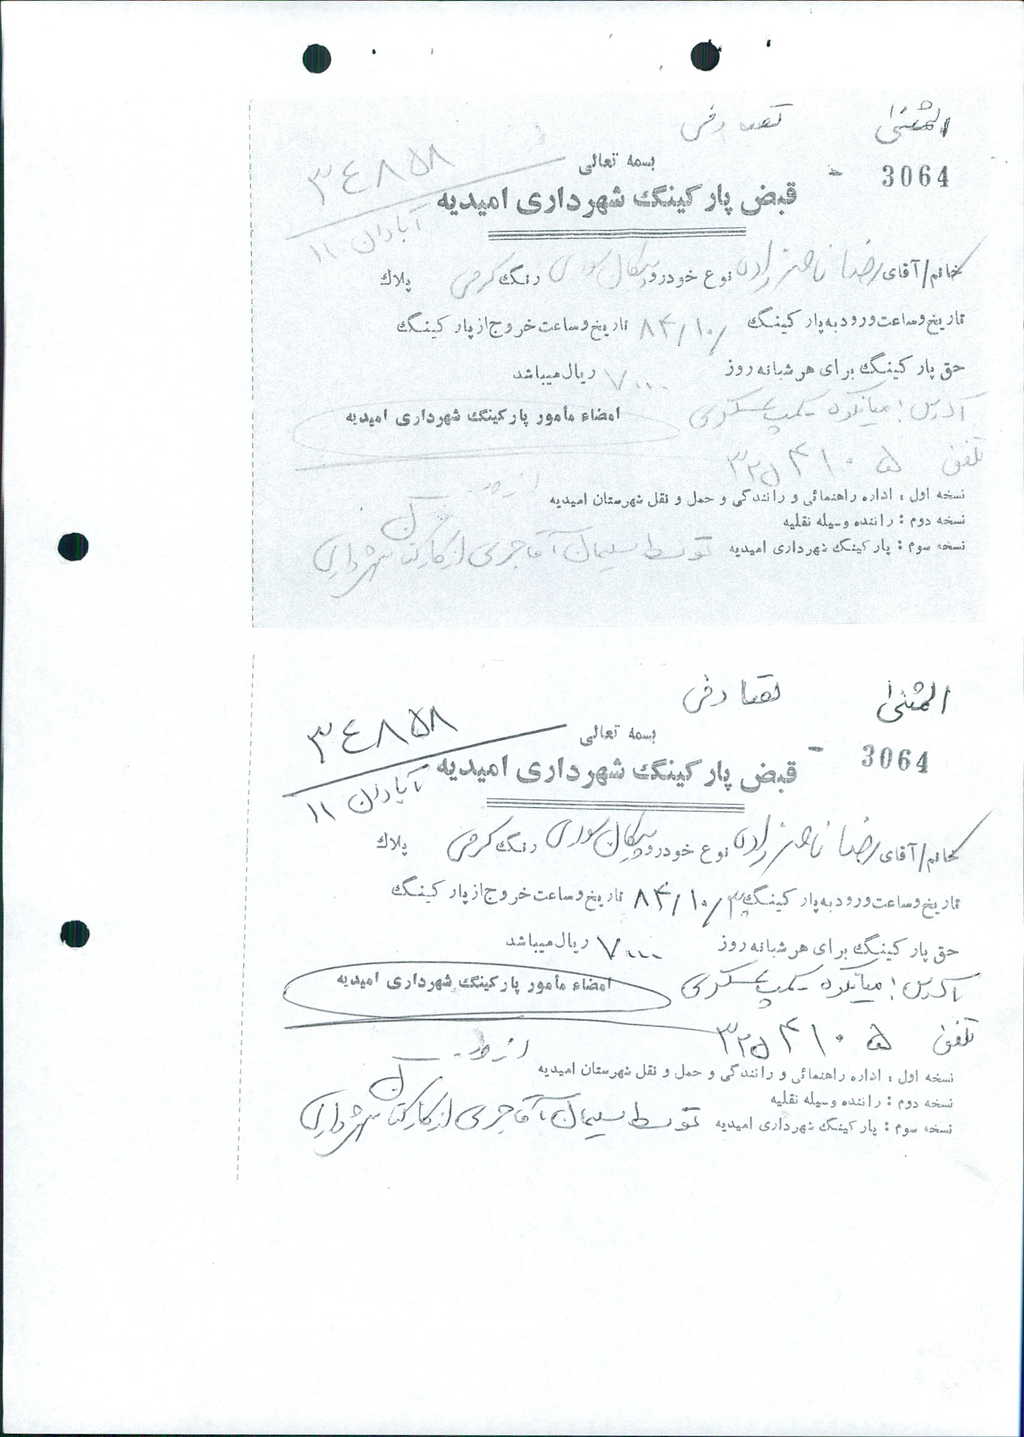 المثنی
3064 -
بسمه تعالی
۳٤۸۵۸
آبادان ۱۱
قبض پارکینگ شهرداری امیدیه
خانم/آقای رضا نوع خودرو پیکان سواری رنگ کرمی پلاک
تاریخ و ساعت ورود به پارکینگ ۸۴/۱۰/ تاریخ و ساعت خروج از پارکینگ
حق پارکینگ برای هر شبانه روز ۷۰۰۰ ریال میباشد
آدرس: میانکوه کمپ
امضاء مأمور پارکینگ شهرداری امیدیه
تلفن ۳۲۵۴۱۰۵
نسخه اول : اداره راهنمائی و رانندگی و حمل و نقل شهرستان امیدیه
نسخه دوم : راننده وسیله نقلیه
نسخه سوم : پارکینگ شهرداری امیدیه توسط سلیمان آقاجری از کارکنان شهرداری
المثنی
3064 -
بسمه تعالی
۳٤۸۵۸
آبادان ۱۱
قبض پارکینگ شهرداری امیدیه
خانم/آقای رضا نوع خودرو پیکان سواری رنگ کرمی پلاک
تاریخ و ساعت ورود به پارکینگ ۸۴/۱۰/۳ تاریخ و ساعت خروج از پارکینگ
حق پارکینگ برای هر شبانه روز ۷۰۰۰ ریال میباشد
آدرس: میانکوه کمپ
امضاء مأمور پارکینگ شهرداری امیدیه
تلفن ۳۲۵۴۱۰۵
نسخه اول : اداره راهنمائی و رانندگی و حمل و نقل شهرستان امیدیه
نسخه دوم : راننده وسیله نقلیه
نسخه سوم : پارکینگ شهرداری امیدیه توسط سلیمان آقاجری از کارکنان شهرداری